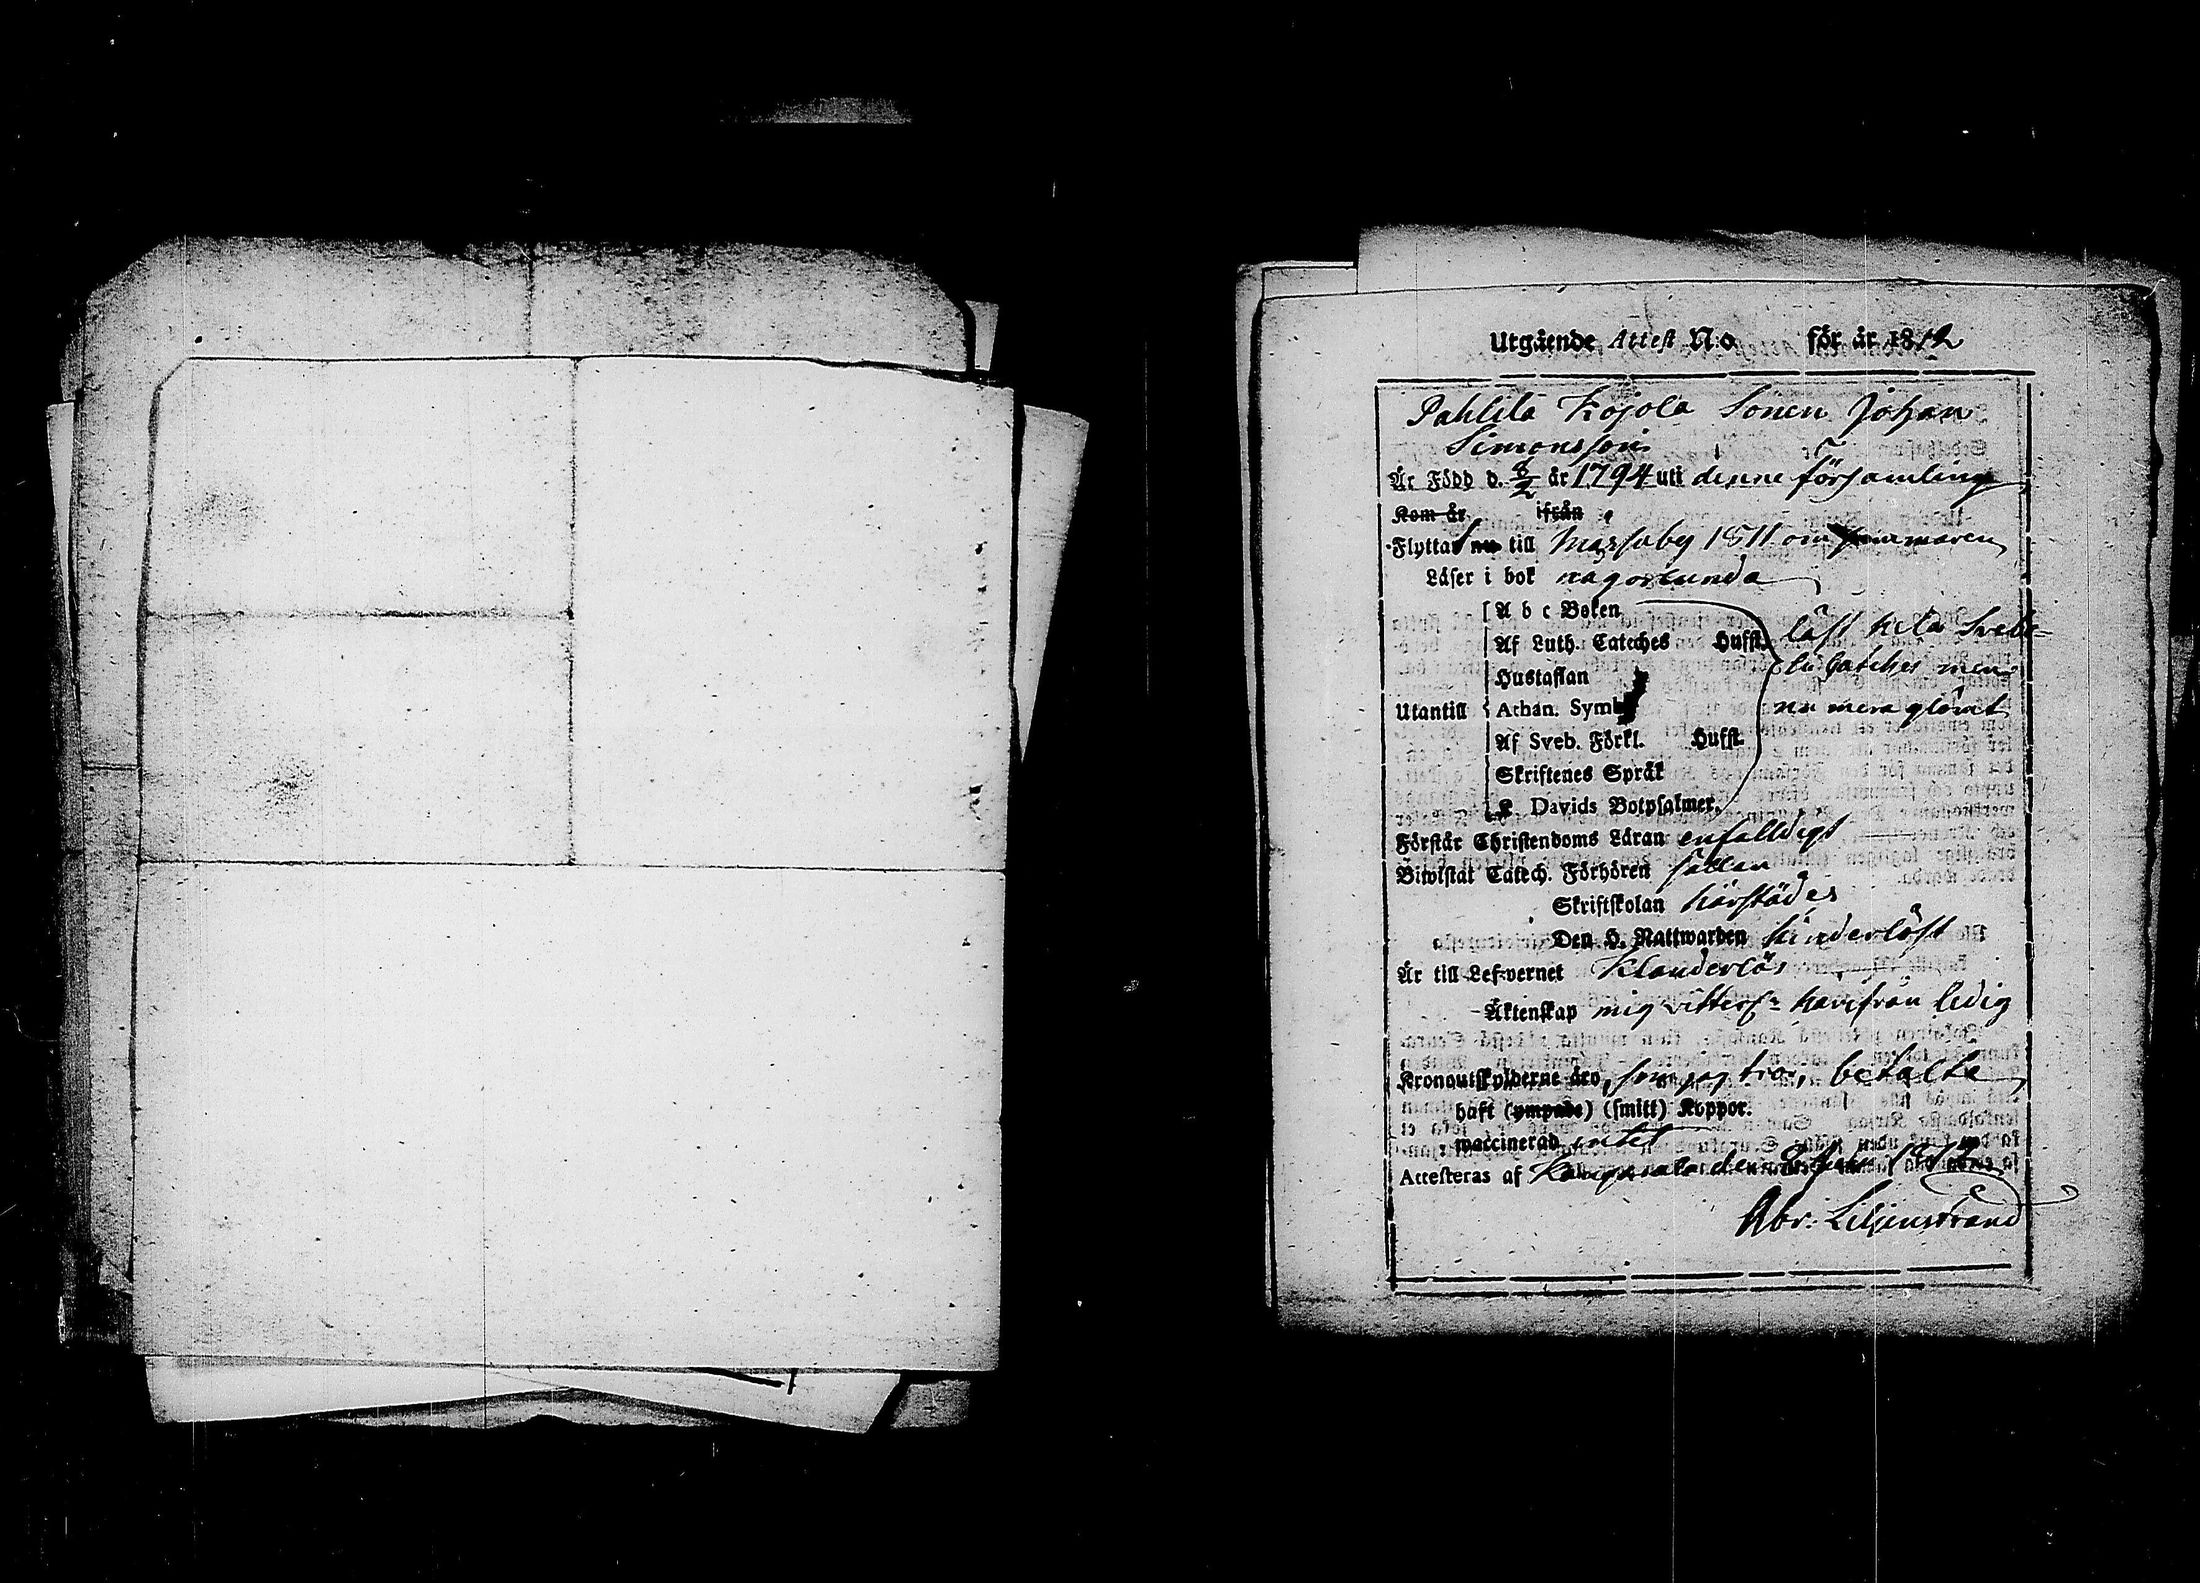 Utgående Attest N:o för år 1812
Pahlila Kojola Sonen Johan
Simonsson
Är Född d. 8/2 år 1794 uti denne församling
Kom år ifrån
Flyttar nu till 1811 om
Läser i bok någorlunda
A b c Boken
Af Luth. Cateches Hufst. läst hela Svebe-
Hustaflan lii Catches men
Utantill Athan. Symb. nu mera glömt
Af Sveb. Förkl. Hufst.
Skriftenes Språk
K. Davids Botpsalmer.
Förstår Christendoms Läran enfalldigt
Biwistat Catech. Förhören sällan
Skriftskolan härstädes
Den H. Nattwarden hinderlöst
Är till Lefvernet Klanderlös
Äktenskap mig vitterl: härifrån ledig
Kronoutskylderne äro, som jag tror, betalte
haft (ympade) (smitt) Koppor.
waccinerad intet
Attesteras af den 1812
Abr: Liljenstrand